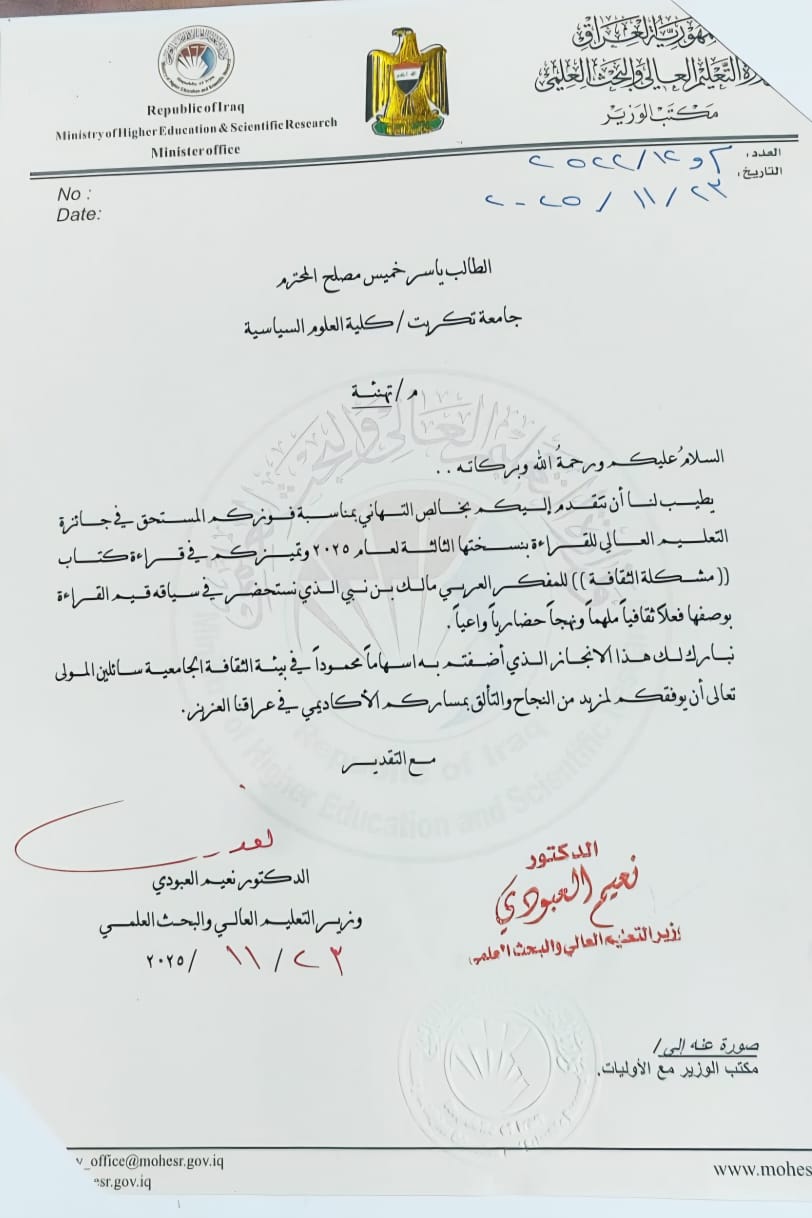 Republic of Iraq
Ministry of Higher Education & Scientific Research
Minister office
جمهورية العراق
وزارة التعليم العالي والبحث العلمي
مكتب الوزير
No :
Date:
العدد:
التاريخ: ٢٣ / ١١ / ٢٠٢٥
الطالب ياسر خميس مصلح المحترم
جامعة تكريت / كلية العلوم السياسية
م / تهنئة
السلامُ عليكم ورحمةُ الله وبركاته . .
يطيب لنا أن نتقدم إليكم بخالص التهاني بمناسبة فوزكم المستحق في جائزة
التعليم العالي للقراءة بنسختها الثالثة لعام ٢٠٢٥ وتميزكم في قراءة كتاب
(( مشكلة الثقافة )) للمفكر العربي مالك بن نبي الذي نستحضر في سياقه قيم القراءة
بوصفها فعلاً ثقافياً ملهماً ونهجاً حضارياً واعياً.
نبارك لك هذا الانجاز الذي أضفتم به اسهاماً محموداً في بيئة الثقافة الجامعية سائلين المولى
تعالى أن يوفقكم لمزيد من النجاح والتألق بمساركم الأكاديمي في عراقنا العزيز.
مع التقدير
الدكتور نعيم العبودي
وزير التعليم العالي والبحث العلمي
٢٣ / ١١ / ٢٠٢٥
الدكتور
نعيم العبودي
وزير التعليم العالي والبحث العلمي
صورة عنه إلى /
مكتب الوزير مع الأوليات.
_office@mohesr.gov.iq
sr.gov.iq
www.mohes